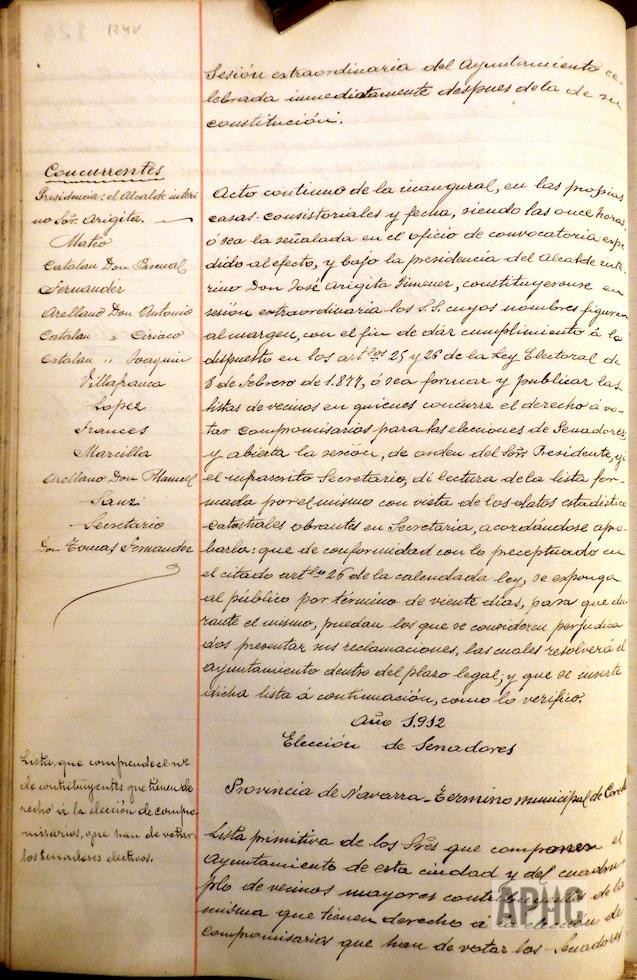 Sesión extraordinaria del Ayuntamiento ce-
lebrada inmediatamente despues de la de su
constitución.
Concurrentes
Presidencia: el Alcalde interi
no Sor. Arigita.
Mateo
Catalan Don Pascual
Fernandez
Arellano Don Antonio
Catalan " Ciriaco
Catalan " Joaquin
Villafranca
Lopez
Frances
Marcilla
Arellano Don Manuel
Sanz
Secretario
Don Tomas Fernandez
Acto continuo de la inaugural, en las propias
casas consistoriales y fecha, siendo las once horas,
ó sea la señalada en el oficio de convocatoria espe
dido al efecto, y bajo la presidencia del Alcalde inte-
rino Don José Arigita Jimenez, constituyeronse en
sesión extraordinaria los S.S. cuyos nombres figuran
al margen, con el fin de dár cumplimiento á lo
dispuesto en los artlos 25 y 26 de la Ley Electoral de
8 de febrero de 1.877, ó sea formar y publicar las
listas de vecinos en quienes concurre el derecho á vo-
tar compromisarios para las elecciones de Senadores,
y abierta la sesión, de orden del Sor. Presidente, yo
el infrascrito Secretario, di lectura de la lista for-
mada por el mismo con vista de los datos estadistico
catastrales obrantes en Secretaria, acordándose apro-
barla: que de conformidad con lo preceptuado en
el citado artlo 26 de la calendada ley, se esponga
al público por término de veinte dias, para que du-
rante el mismo, puedan los que se consideren perjudica
dos presentar sus reclamaciones, las cuales resolverá el
Ayuntamiento dentro del plazo legal; y que se inserte
dicha lista á continuación, como lo verifico.
Año 1.912
Elección de Senadores
Provincia de Navarra - Termino municipal de
Lista, que comprende el nº
de contribuyentes que tienen de
recho á la elección de compro-
misarios, que han de votar
los Senadores electivos.
Lista primitiva de los Sres que componen el
Ayuntamiento de esta ciudad y del cuadru-
plo de vecinos mayores contribuyentes de la
misma que tienen derecho á la elección de
compromisarios que han de votar los Senadores
APHC